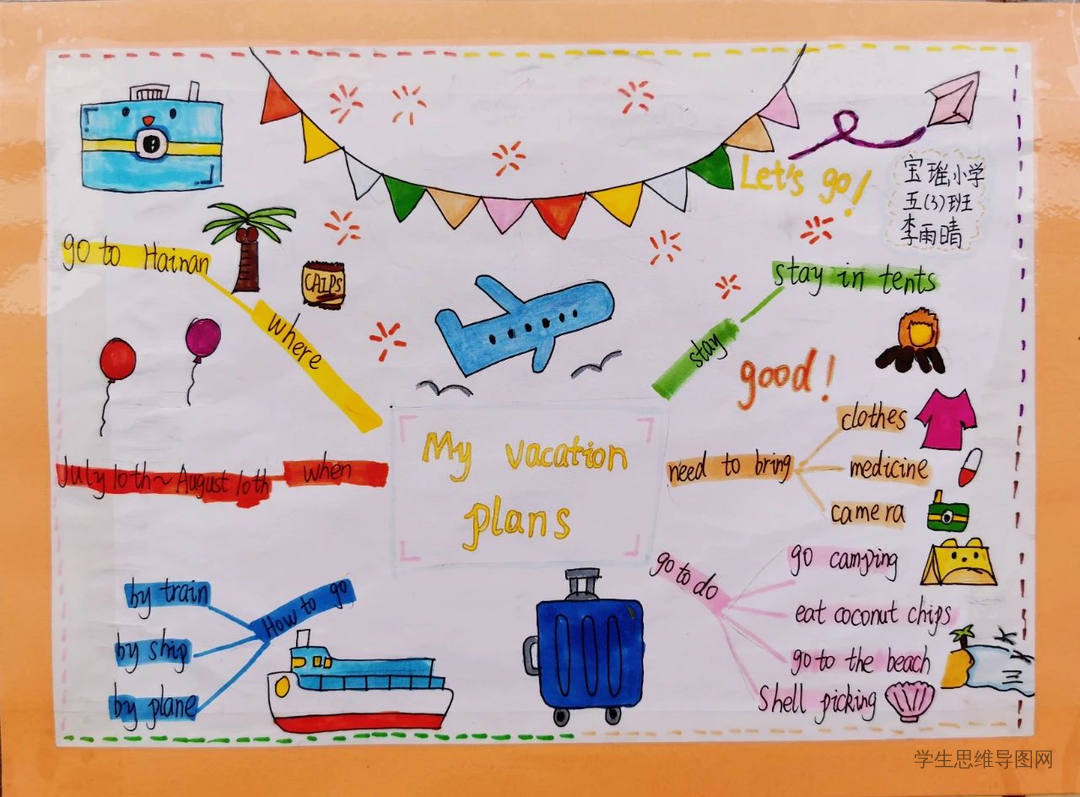 Let's go!
宝瑶小学
五(3)班
李雨晴
go to Hainan
CHIPS
where
stay in tents
stay
good!
My vacation
plans
July 10th~August 10th
when
need to bring
clothes
medicine
camera
How to go
by train
by ship
by plane
go to do
go camping
eat coconut chips
go to the beach
shell picking
学生思维导图网